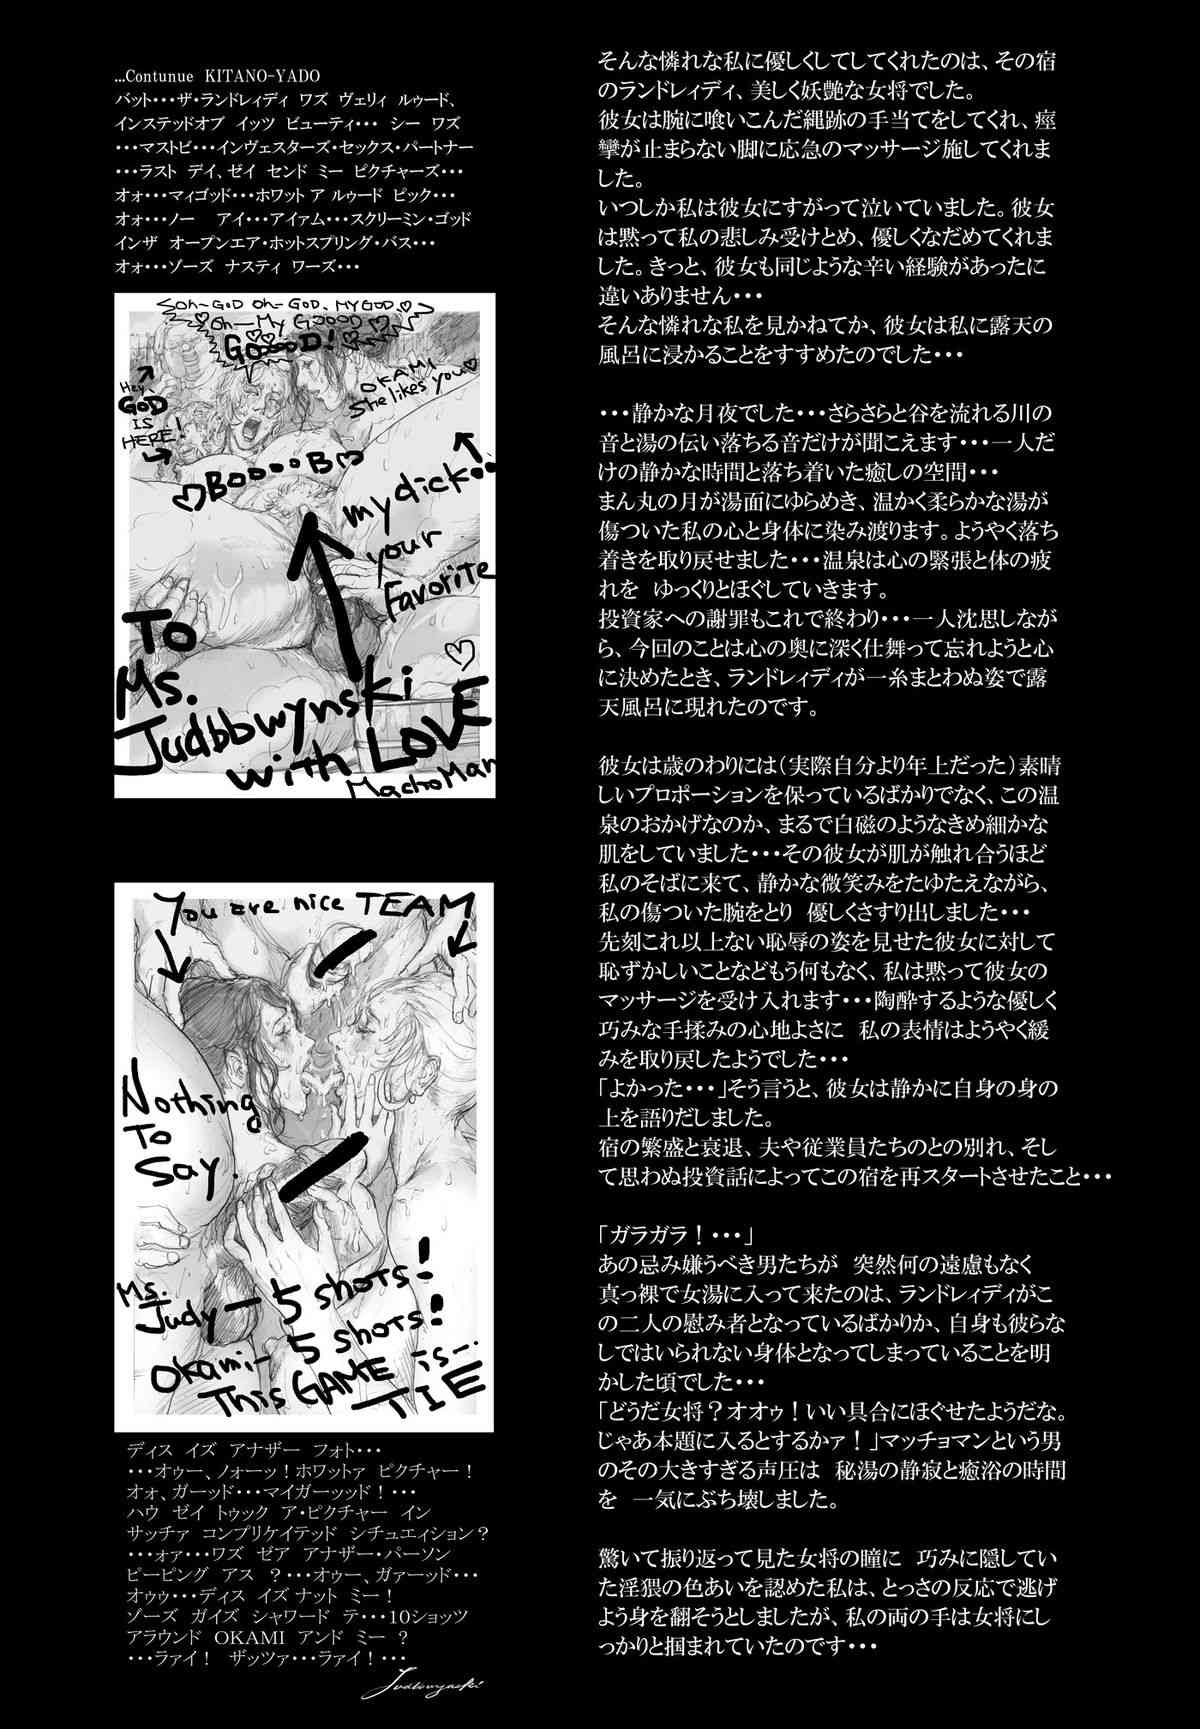 ...Contunue KITANO-YADO
バット・・・ザ・ランドレィディ ワズ ヴェリィ ルゥード、
インステッドオブ イッツ ビューティ・・・ シー ワズ
・・・マストビ・・・インヴェスターズ・セックス・パートナー
・・・ラスト デイ、ゼイ センド ミー ピクチャーズ・・・
オォ・・・マィゴッド・・・ホワット ア ルゥード ピック・・・
オォ・・・ノー アイ・・・アイァム・・・スクリーミン・ゴッド
インザ オープンエア・ホットスプリング・バス・・・
オォ・・・ゾーズ ナスティ ワーズ・・・
Oh-GOD Oh-GOD, MY GOD♡
Oh-My GOOOD
GOOOOD!
OKAMI
She likes you♡
Hey,
GOD
IS
HERE!
♡BOOOOB♡
my dick!!
your
Favorite
To
Ms.
Judbbwynski
with LOVE
MachoMan
You are nice TEAM
Nothing
To
Say.
Ms.
Judy- 5 shots!
Okami- 5 shots!
This GAME is-
TIE
ディス イズ アナザー フォト・・・
・・・オゥー、ノォーッ！ホワットァ ピクチャー！
オォ、ガーッド・・・マイガーッッド！・・・
ハウ ゼイ トゥック ア・ピクチャー イン
サッチァ コンプリケイテッド シチュエィション？
・・・ォァ・・・ワズ ゼア アナザー・パーソン
ピーピング アス ？・・・オゥー、ガァーッド・・・
オゥゥ・・・ディス イズ ナット ミー！
ゾーズ ガイズ シャワード テ・・・10ショッツ
アラウンド OKAMI アンド ミー ？
・・・ラァイ！ ザッツァ・・・ラァイ！・・・
そんな憐れな私に優しくしてしてくれたのは、その宿
のランドレィディ、美しく妖艶な女将でした。
彼女は腕に喰いこんだ縄跡の手当てをしてくれ、痙
攣が止まらない脚に応急のマッサージ施してくれま
した。
いつしか私は彼女にすがって泣いていました。彼女
は黙って私の悲しみ受けとめ、優しくなだめてくれま
した。きっと、彼女も同じような辛い経験があったに
違いありません・・・
そんな憐れな私を見かねてか、彼女は私に露天の
風呂に浸かることをすすめたのでした・・・
・・・静かな月夜でした・・・さらさらと谷を流れる川の
音と湯の伝い落ちる音だけが聞こえます・・・一人だ
けの静かな時間と落ち着いた癒しの空間・・・
まん丸の月が湯面にゆらめき、温かく柔らかな湯が
傷ついた私の心と身体に染み渡ります。ようやく落ち
着きを取り戻せました・・・温泉は心の緊張と体の疲
れを ゆっくりとほぐしていきます。
投資家への謝罪もこれで終わり・・・一人沈思しなが
ら、今回のことは心の奥に深く仕舞って忘れようと心
に決めたとき、ランドレィディが一糸まとわぬ姿で露
天風呂に現れたのです。
彼女は歳のわりには（実際自分より年上だった）素晴
しいプロポーションを保っているばかりでなく、この温
泉のおかげなのか、まるで白磁のようなきめ細かな
肌をしていました・・・その彼女が肌が触れ合うほど
私のそばに来て、静かな微笑みをたゆたえながら、
私の傷ついた腕をとり 優しくさすり出しました・・・
先刻これ以上ない恥辱の姿を見せた彼女に対して
恥ずかしいことなどもう何もなく、私は黙って彼女の
マッサージを受け入れます・・・陶酔するような優しく
巧みな手揉みの心地よさに 私の表情はようやく緩
みを取り戻したようでした・・・
「よかった・・・」そう言うと、彼女は静かに自身の身の
上を語りだしました。
宿の繁盛と衰退、夫や従業員たちのとの別れ、そし
て思わぬ投資話によってこの宿を再スタートさせたこと・・・
「ガラガラ！・・・」
あの忌み嫌うべき男たちが 突然何の遠慮もなく
真っ裸で女湯に入って来たのは、ランドレィディがこ
の二人の慰み者となっているばかりか、自身も彼らな
しではいられない身体となってしまっていることを明
かした頃でした・・・
「どうだ女将？オオゥ！いい具合にほぐせたようだな。
じゃあ本題に入るとするかァ！」マッチョマンという男
のその大きすぎる声圧は 秘湯の静寂と癒浴の時間
を 一気にぶち壊しました。
驚いて振り返って見た女将の瞳に 巧みに隠してい
た淫猥の色あいを認めた私は、とっさの反応で逃げ
よう身を翻そうとしましたが、私の両の手は女将にし
っかりと掴まれていたのです・・・